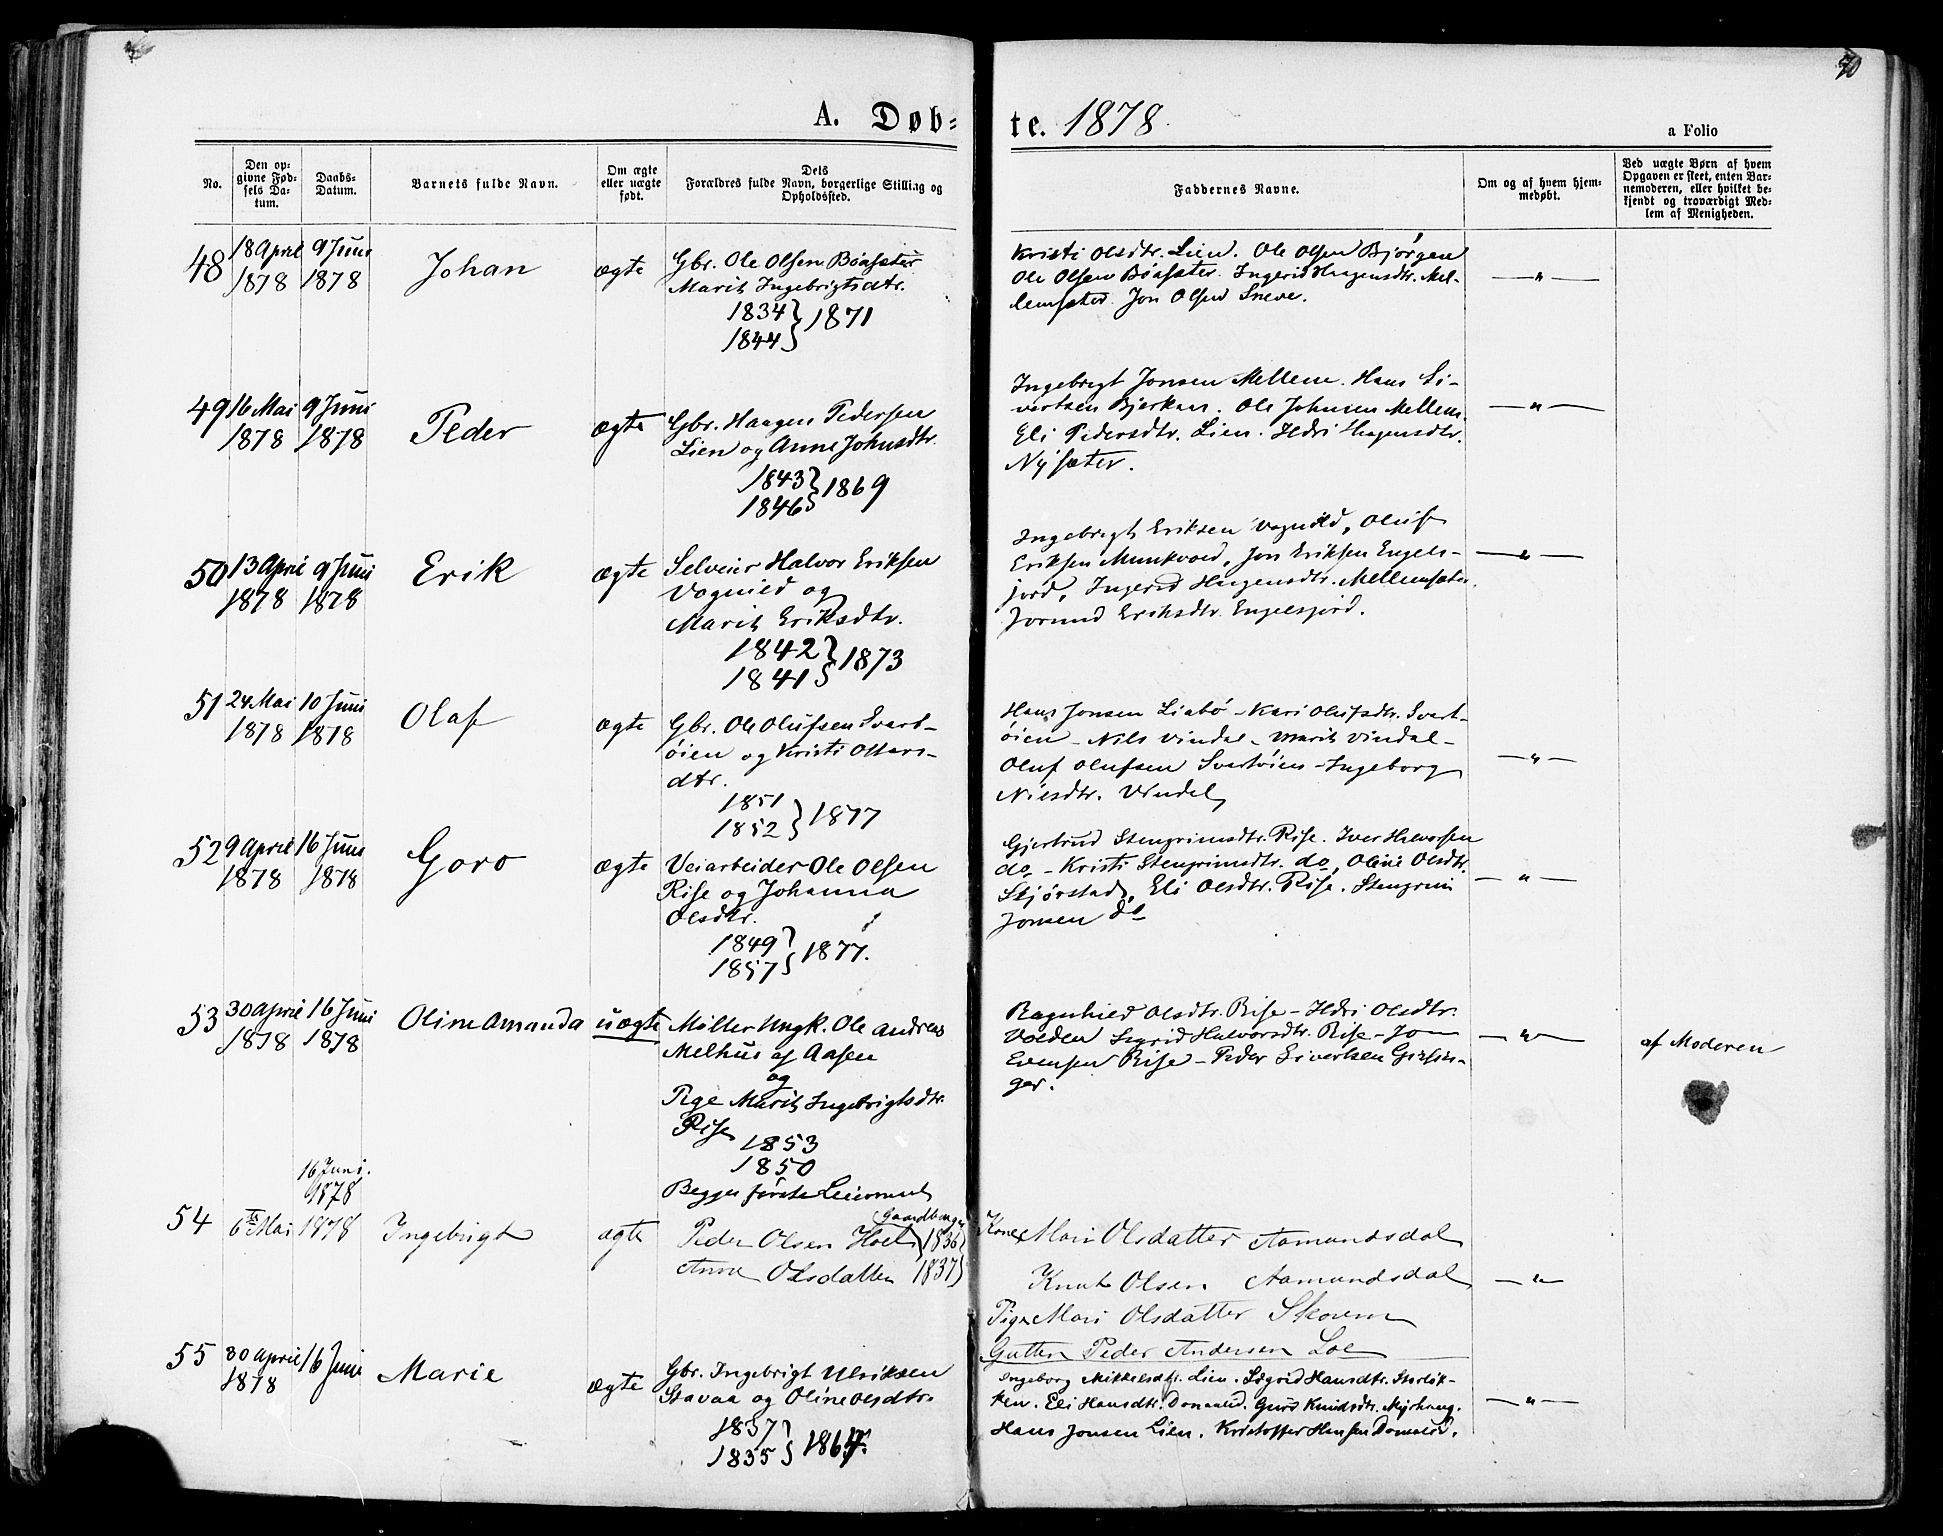 70
A. Døb=
te. 1878.
a Folio
No.
Den op=
givne Fød=
sels Da=
tum.
Daabs=
Datum.
Barnets fulde Navn.
Om ægte
eller uægte
født.
Dets
Forældres fulde Navn, borgerlige Stilling og
Opholdssted.
Faddernes Navne.
Om og af hvem hjem=
medøbt.
Ved uægte Børn af hvem
Opgaven er skeet, enten Bar=
nemoderen, eller hvilket be=
kjendt og troværdigt Med=
lem af Menigheden.
48
18 April
1878
9 Juni
1878
Johan
ægte
Gbr. Ole Olsen Bøasæter
Marit Ingebrigtsdtr.
1834
1844 } 1871
Kristi Olsdtr. Lien. Ole Olsen Bjørgen
Ole Olsen Bøasæter. Ingerid Hagensdtr. Mel-
lemsæter. Jon Olsen Sneve.
— " —
49
16 Mai
1878
9 Juni
1878
Peder
ægte
Gbr. Haagen Pedersen
Lien og Anne Johnsdtr.
1843
1846 } 1869
Ingebrigt Jonsen Mellem. Hans Si-
vertsen Bjerkaas. Ole Johnsen Mellem
Eli Pedersdtr. Lien. Hdri Hagensdtr.
Nysæter.
— " —
50
13 April
1878
9 Juni
1878
Erik
ægte
Selveier Halvor Eriksen
Vognild og
Marit Eriksdtr.
1842
1841 } 1873
Ingebrigt Eriksen Vognild, Oluf
Eriksen Munkvold, Jon Eriksen Engels-
jord, Ingerid Hagensdtr. Mellemsæter
Jorund Eriksdtr. Engelsjord.
— " —
51
24 Mai
1878
10 Juni
1878
Olaf
ægte
Gbr. Ole Olufsen Svart-
øien og Kristi Ottars-
dtr.
1851
1852 } 1877
Hans Jonsen Liabø - Kari Olufsdtr. Svart-
øien - Nils Vindal - Marit Vindal -
Oluf Olufsen Svartøien - Ingeborg
Nilsdtr. Vindal
— " —
52
9 April
1878
16 Juni
1878
Goro
ægte
Veiarbeider Ole Olsen
Rise og Johanna
Olsdtr.
1849
1857 } 1877.
Gjertrud Stengrimsdtr. Rise. Iver Halvorsen
do - Kristi Stengrimsdtr. do, Oline Olsdtr.
Stjørstad, Eli Olsdtr. Rise. Stengrim
Jonsen do
— " —
53
30 April
1878
16 Juni
1878
Oline Amanda
uægte
Møller Ungk. Ole Andreas
Melhus af Aasen
og
Pige Marit Ingebrigtsdtr.
Rise
1853
1850
Begges første Leiermaal
Ragnhild Olsdtr. Rise - Hdri Olsdtr.
Volden Sigrid Halvorsdtr. Rise - Jon
Evensen Rise - Peder Sivertsen
ger.
— " —
af Moderen
54
6te Mai
16 Juni.
1878
1878
Ingebrigt
ægte
Gaardbruger
Peder Olsen Hoel 1836
Anne Olsdatter 1837
Kone Mari Olsdatter Aamundsdal
Knut Olsen Aamundsdal
Pige Mari Olsdatter Skoven
Gutten Peder Andersen Loe
— " —
55
30 April
1878
16 Juni
Marie
ægte
Gbr. Ingebrigt Ulriksen
Stavaa og Oline Olsdtr.
1837
1835 } 1864.
Ingeborg Mikkelsdtr. Lien. Sigrid Hansdtr. Storløk-
ken. Eli Hansdtr. Donalid. Guro Knudsdtr. Myrhaug.
Hans Jonsen Lien. Kristoffer Hansen Donalid.
— " —